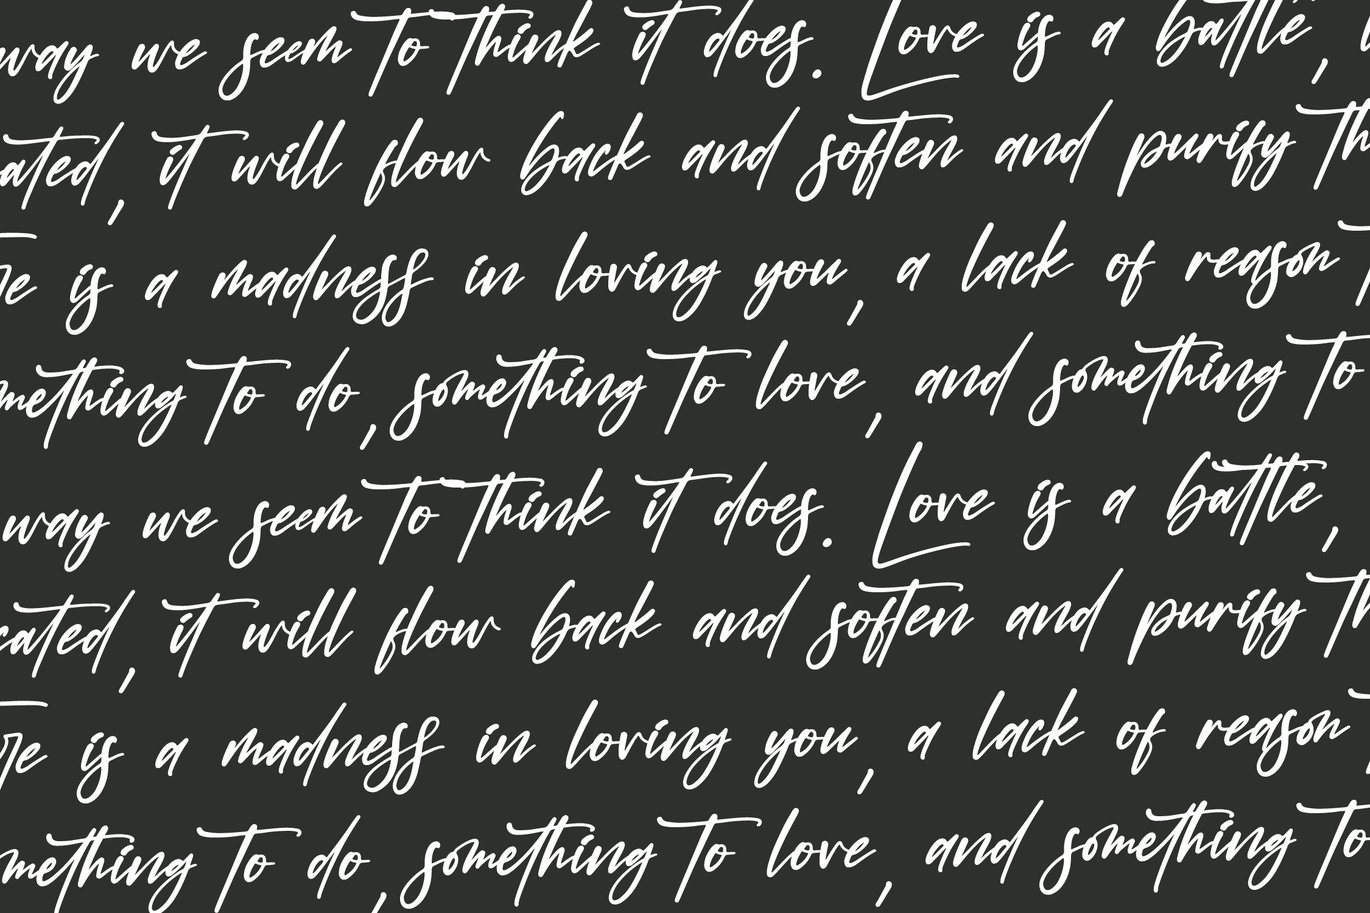 way we seem to think it does. Love is a battle,
ated, it will flow back and soften and purify th
re is a madness in loving you, a lack of reason
mething to do, something to love, and something to
way we seem to think it does. Love is a battle,
cated, it will flow back and soften and purify th
re is a madness in loving you, a lack of reason
mething to do, something to love, and something to